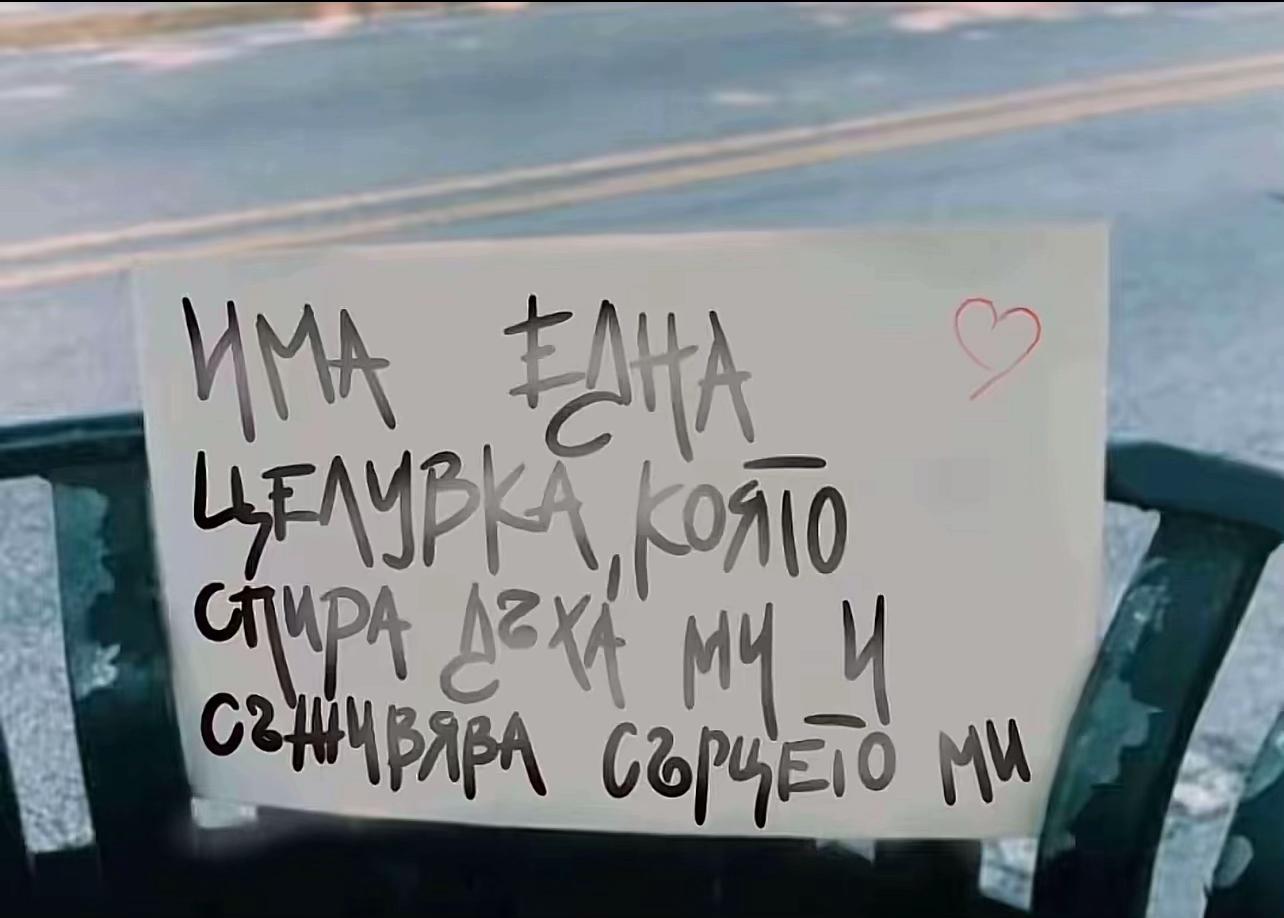 ИМА ЕДНА
ЦЕЛУВКА, КОЯТО
СПИРА ДЪХА МИ И
СЪЖИВЯВА СЪРЦЕТО МИ